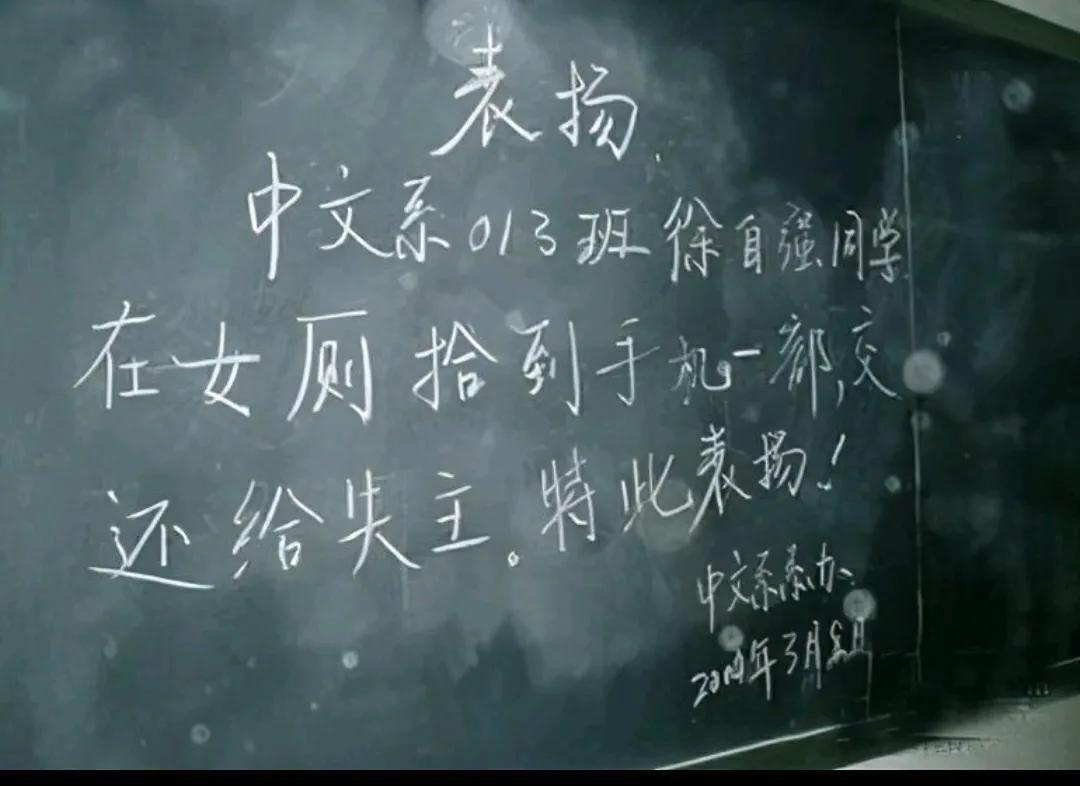 表扬
中文系013班徐自强同学
在女厕拾到手机一部,交
还给失主。特此表扬!
中文系系办
年3月